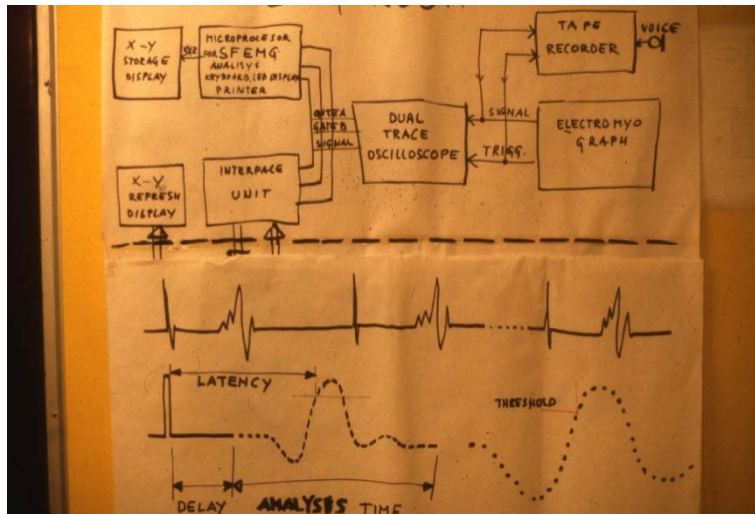 X-Y
STORAGE
DISPLAY
MICROPROCESOR
FOR SFEMG
ANALISYS
KEYBOARD, LED DISPLAY
PRINTER
TAPE
RECORDER
VOICE
GATE A
GATE B
SIGNAL
DUAL
TRACE
OSCILLOSCOPE
SIGNAL
TRIGG.
ELECTROMYO
GRAPH
X-Y
REFRESH
DISPLAY
INTERFACE
UNIT
LATENCY
THRESHOLD
DELAY
ANALYSES TIME